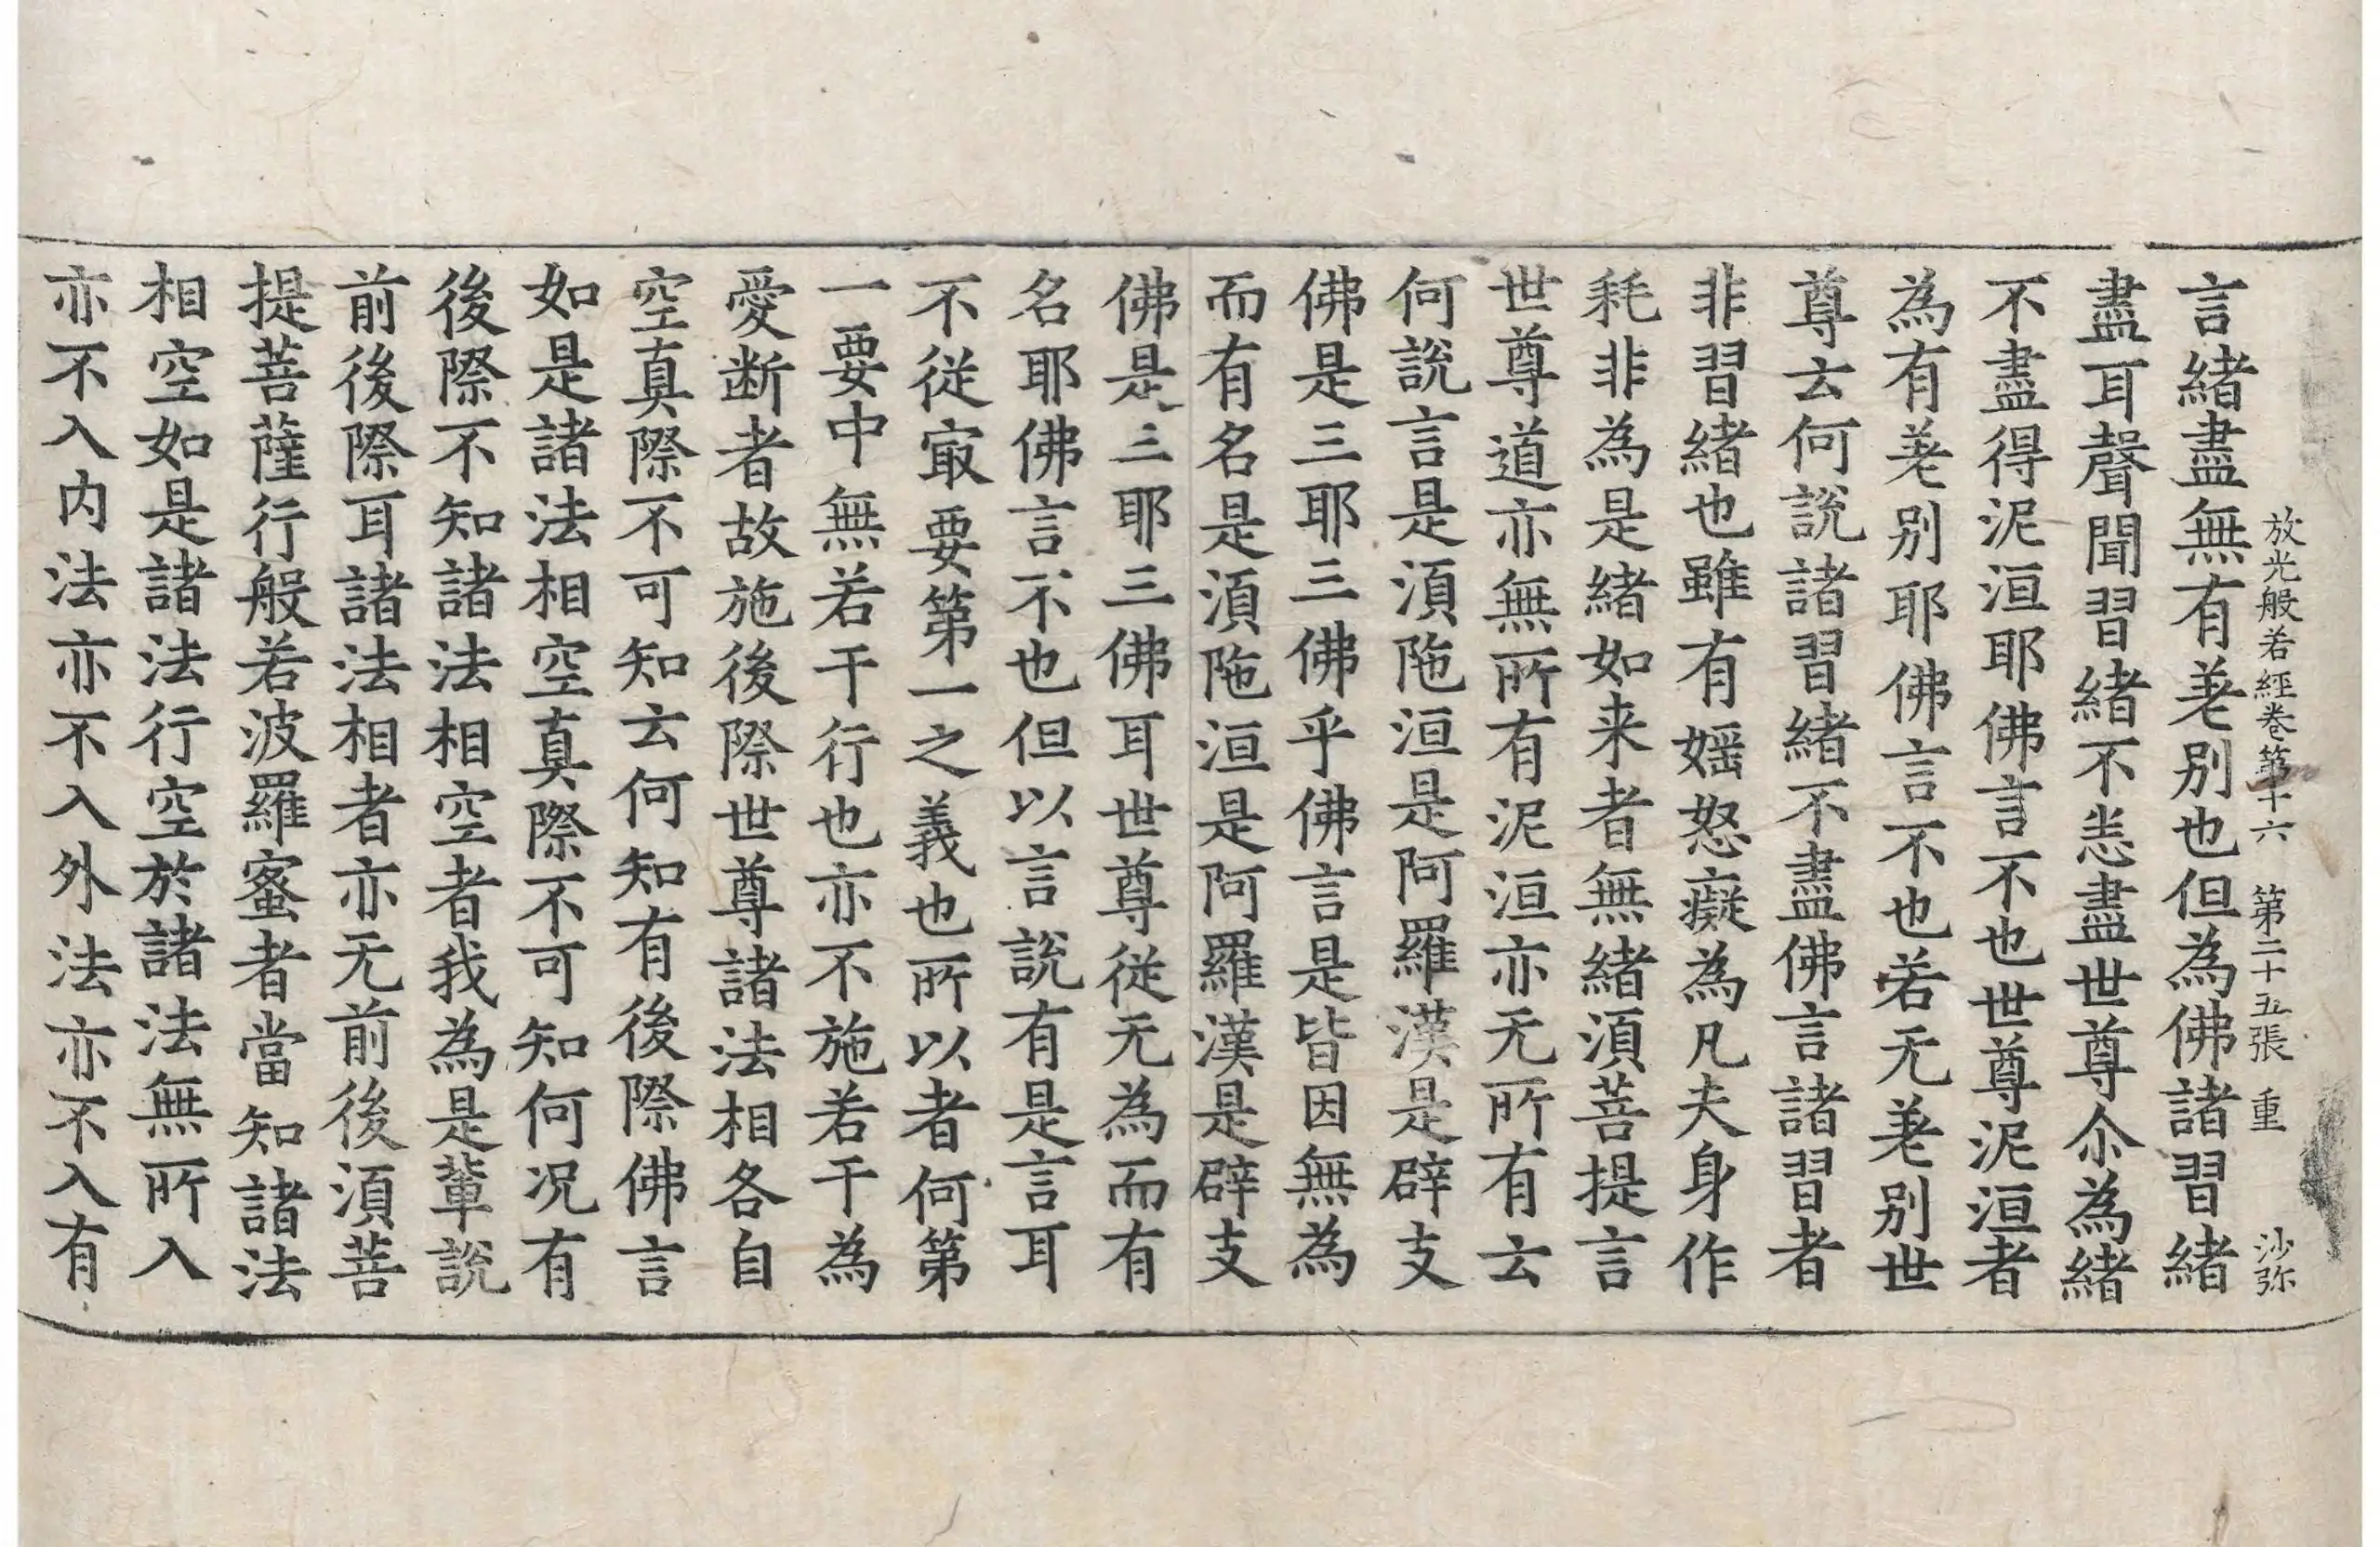 放光般若經卷第十六 第二十五張 重 沙弥
言緒盡無有差別也但為佛諸習緒
盡耳聲聞習緒不悉盡世尊尒為緒
不盡得泥洹耶佛言不也世尊泥洹者
為有差別耶佛言不也若无差別世
尊云何說諸習緒不盡佛言諸習者
非習緒也雖有婬怒癡為凡夫身作
耗非為是緒如来者無緒須菩提言
世尊道亦無所有泥洹亦无所有云
何說言是須陁洹是阿羅漢是辟支
佛是三耶三佛乎佛言是皆因無為
而有名是須陁洹是阿羅漢是辟支
佛是三耶三佛耳世尊從无為而有
名耶佛言不也但以言說有是言耳
不從冣要第一之義也所以者何第
一要中無若干行也亦不施若干為
愛断者故施後際世尊諸法相各自
空真際不可知云何知有後際佛言
如是諸法相空真際不可知何况有
後際不知諸法相空者我為是輩說
前後際耳諸法相者亦无前後須菩
提菩薩行般若波羅蜜者當知諸法
相空如是諸法行空於諸法無所入
亦不入内法亦不入外法亦不入有